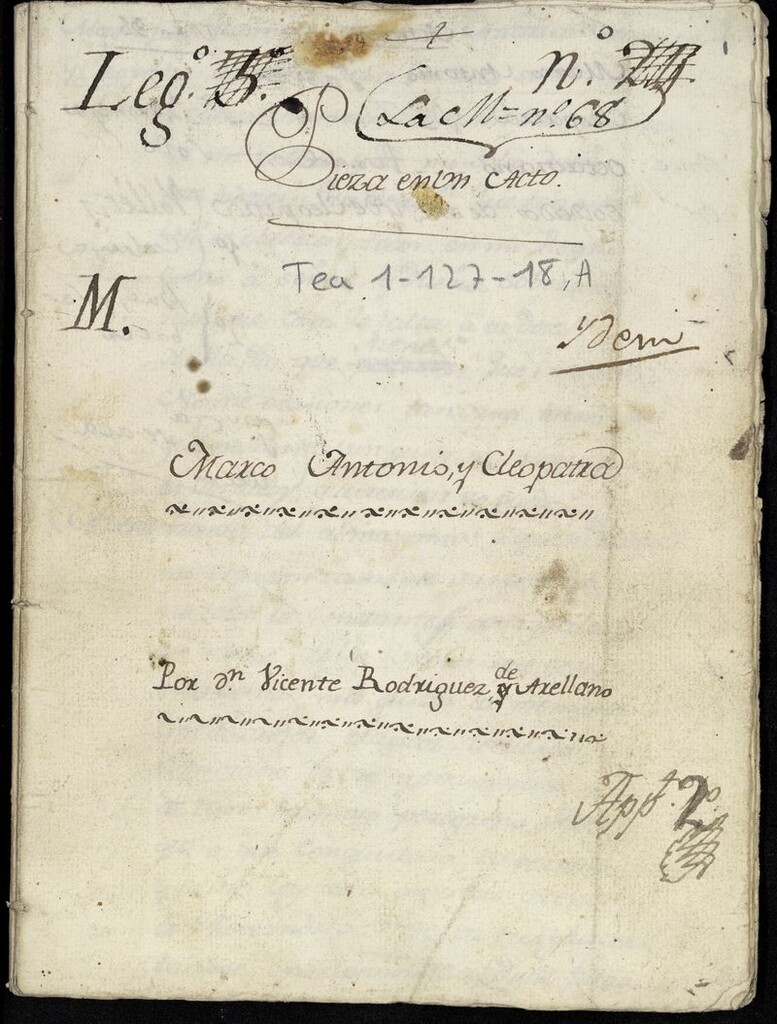 Leg.º 5.º nº
La M = nº 68
Pieza en Un Acto.
Tea 1-127-18, A
M.
Ydem
Marco Antonio, y Cleopatra
Por dⁿ Vicente Rodriguez de y Arellano
App.^to 2º